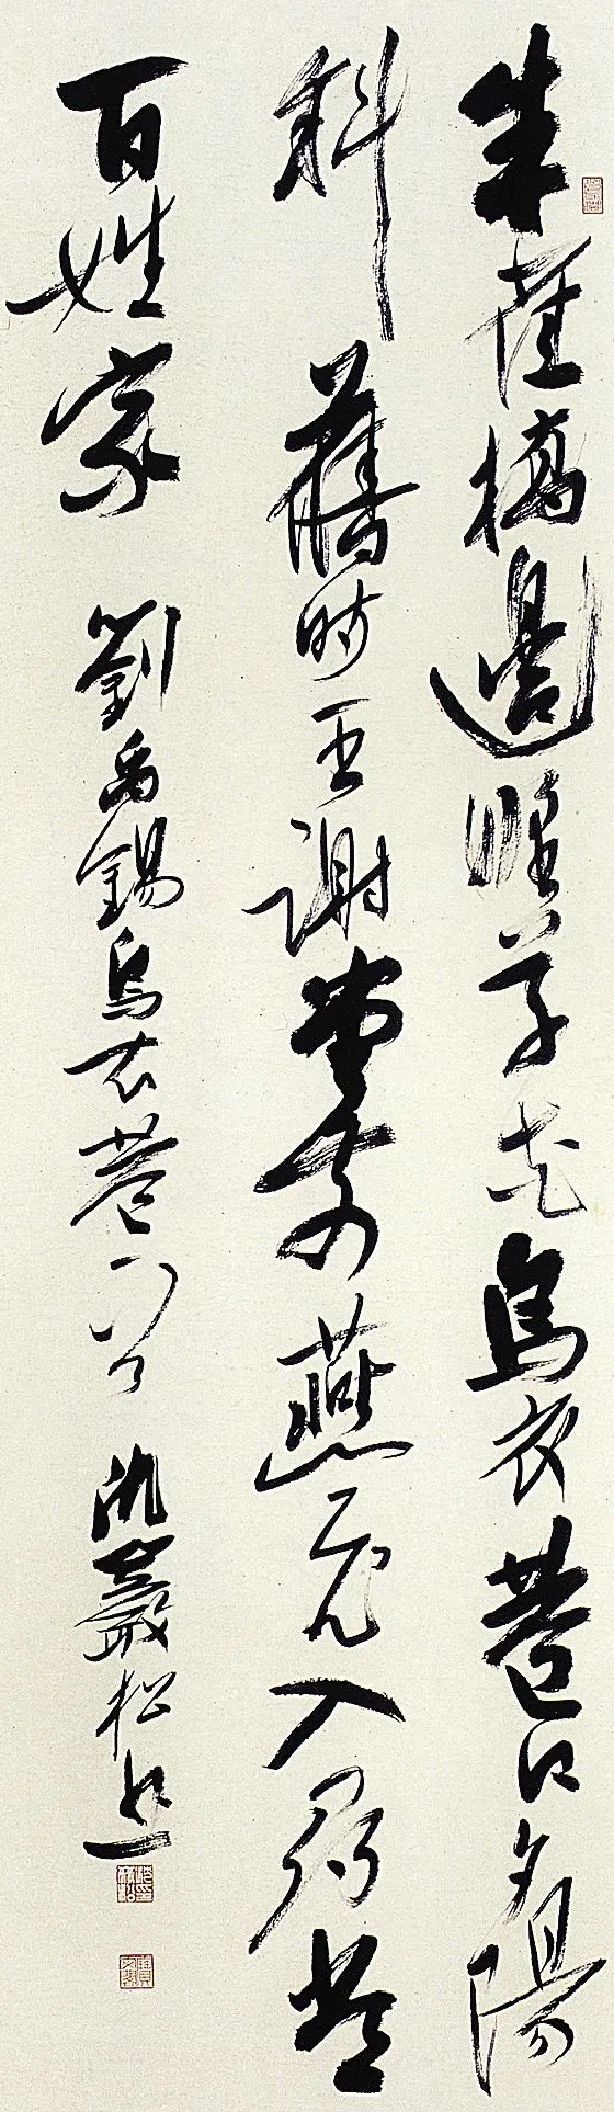 朱雀橋邊野草花烏衣巷口夕陽
斜舊時王謝堂前燕飛入尋常
百姓家 劉禹錫烏衣巷 巖松